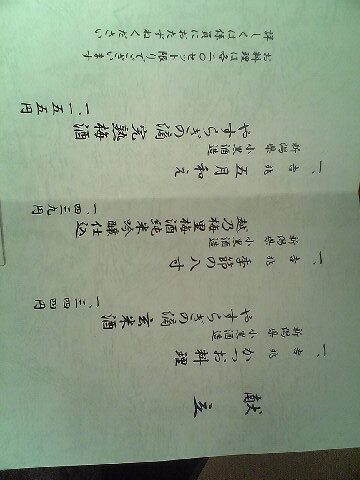 献立
一、吉兆 かつお料理
新潟県 小黒酒造
やすらぎの滴 玄米酒
一、三四四円
一、吉兆 季節の八寸
新潟県 小黒酒造
越乃梅里 梅酒純米吟醸仕込
一、四三九円
一、吉兆 五月和え
新潟県 小黒酒造
やすらぎの滴 完熟梅酒
一、一五五円
お料理は各二〇セット限りでございます
詳しくは係員におたずねください